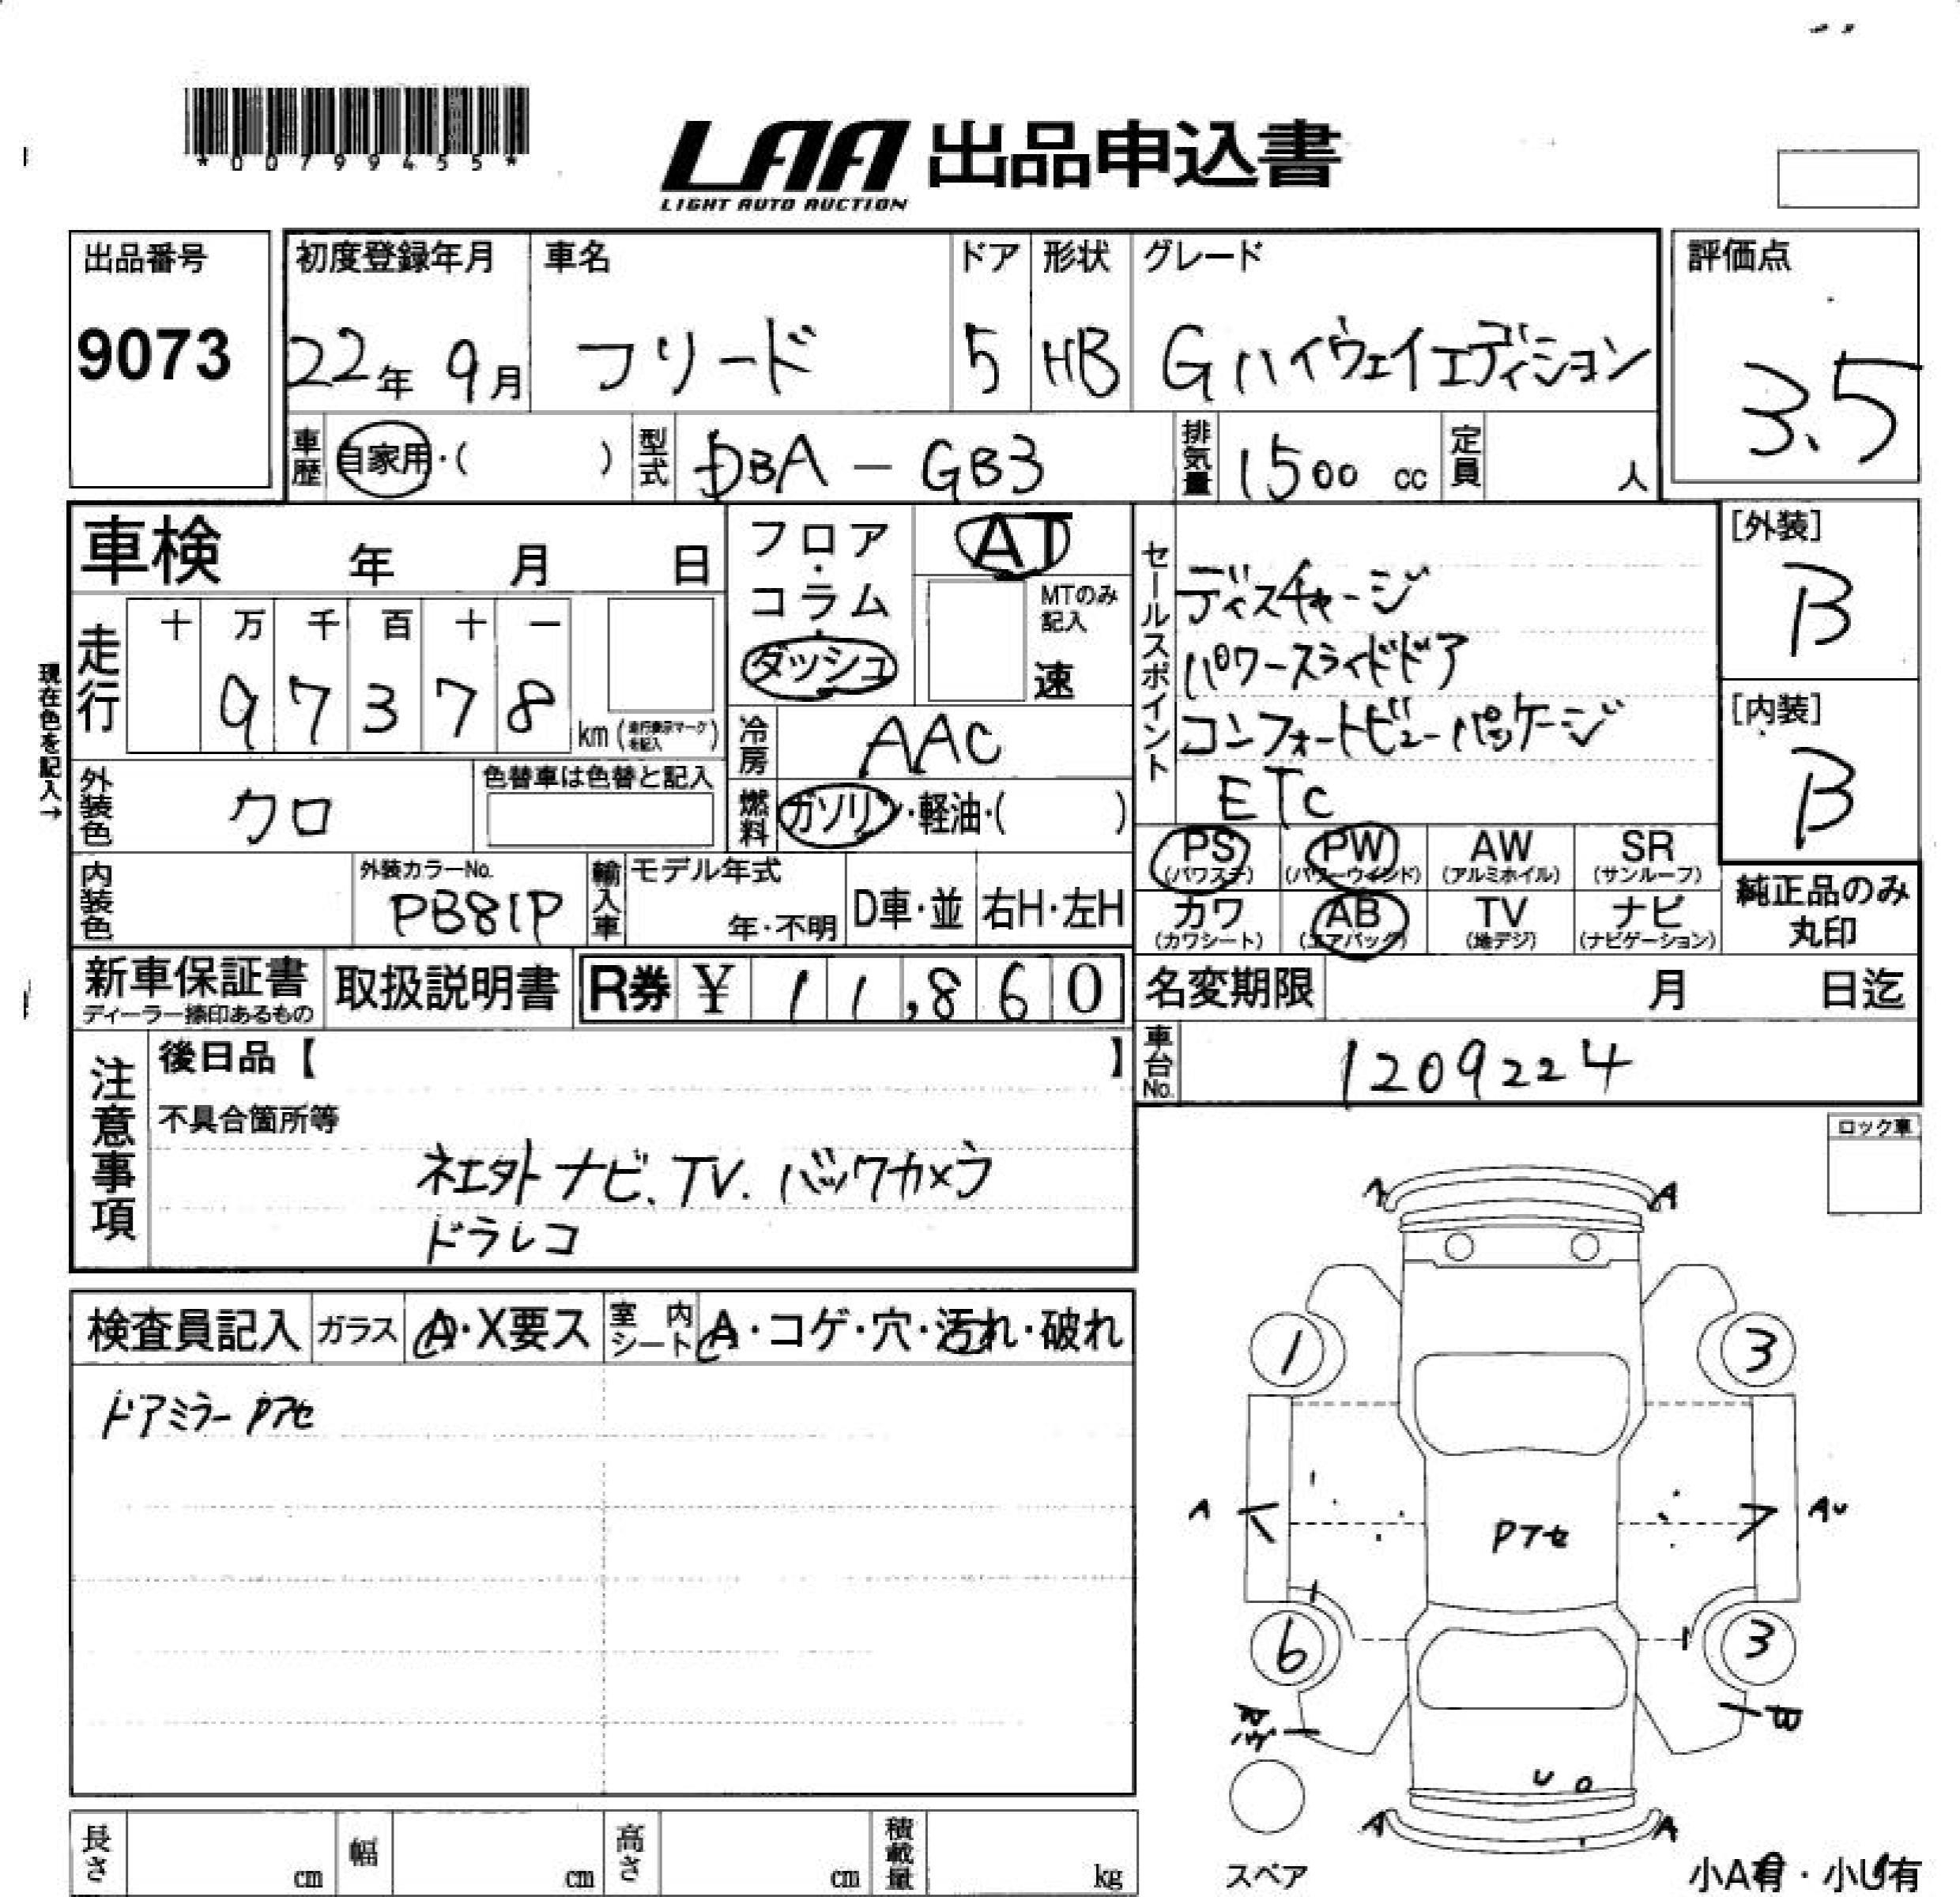 *00799455*
LAA 出品申込書
LIGHT AUTO AUCTION
出品番号
9073
初度登録年月
22年 9月
車名
フリード
ドア
5
形状
HB
グレード
Gハイウェイエディション
評価点
3.5
車歴 自家用・( )
型式 DBA - GB3
排気量 1500 cc
定員 人
車検 年 月 日
現在色を記入→
走行
十 万 千 百 十 一
9 7 3 7 8 km (走行表示マークを記入)
フロア・コラム・ダッシュ
AT
MTのみ記入
速
冷房 AAC
燃料 ガソリン・軽油・( )
外装色 クロ
色替車は色替と記入
内装色
外装カラーNo.
PB81P
輸入車 モデル年式
年・不明
D車・並
右H・左H
セールスポイント
ディスチャージ
パワースライドドア
コンフォートビューパッケージ
ETC
[外装]
B
[内装]
B
PS (パワステ)
PW (パワーウィンド)
AW (アルミホイル)
SR (サンルーフ)
カワ (カワシート)
AB (エアバッグ)
TV (地デジ)
ナビ (ナビゲーション)
純正品のみ
丸印
新車保証書
ディーラー捺印あるもの
取扱説明書
R券 ¥ 11,860
名変期限 月 日迄
車台No. 1209224
注意事項
後日品【 】
不具合箇所等
ナビ、TV、バックカメラ
ドラレコ
ロック車
検査員記入
ガラス A・X要ス
室内シート A・コゲ・穴・汚れ・破れ
ドアミラー Pアセ
A A
1 3
A
Pアセ
AU
6 3
U
A A
スペア
小A有・小U有
長さ cm
幅 cm
高さ cm
積載量 kg